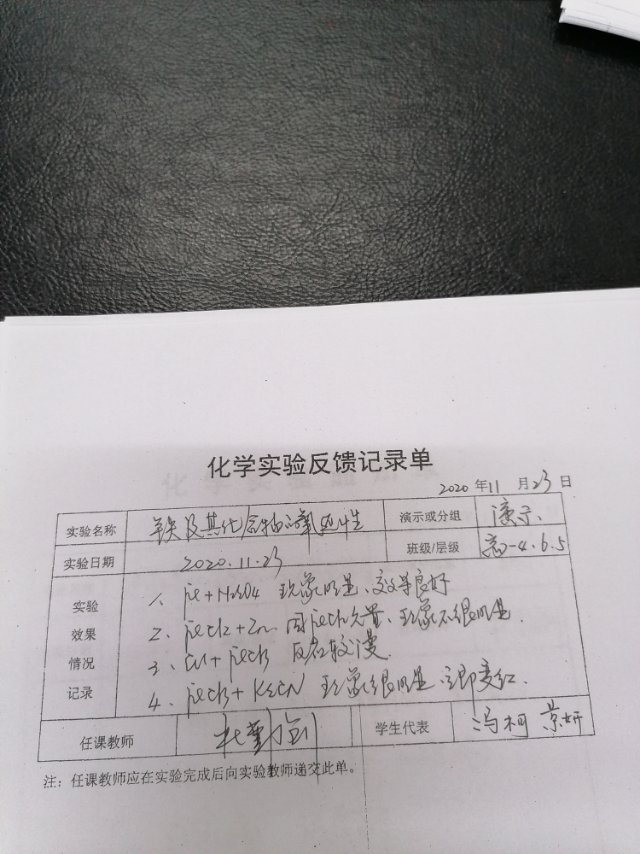 化学实验反馈记录单
2020年11月23日
实验名称 铁及其化合物的氧化性 演示或分组 演示
实验日期 2020.11.23 班级/层级 高一4.6.5
实验效果情况记录
1、Fe+H2SO4 现象明显、效果良好
2、FeCl2+Zn 因FeCl2 现象不很明显.
3、Cu+FeCl3 反应较慢
4、FeCl3+KSCN 现象很明显、立即变红.
任课教师 杜勤剑 学生代表 冯柯 景妍
注：任课教师应在实验完成后向实验教师递交此单。